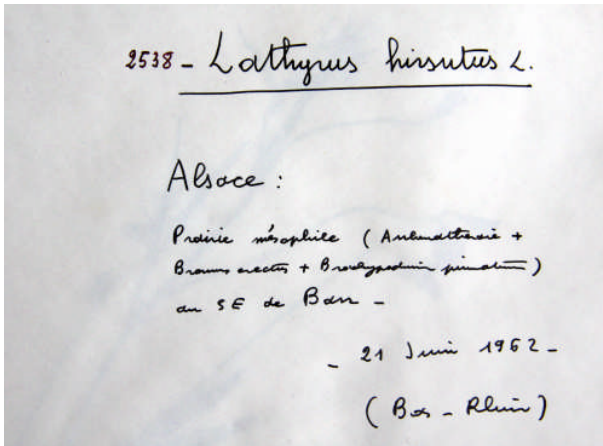 2538 - Lathyrus hirsutus L.
Alsace :
Prairie mésophile ( Arrhenatheraie +
Bromus erectus + Brachypodium pinnatum )
au SE de Barr -
- 21 Juin 1962 -
( Bas - Rhin )